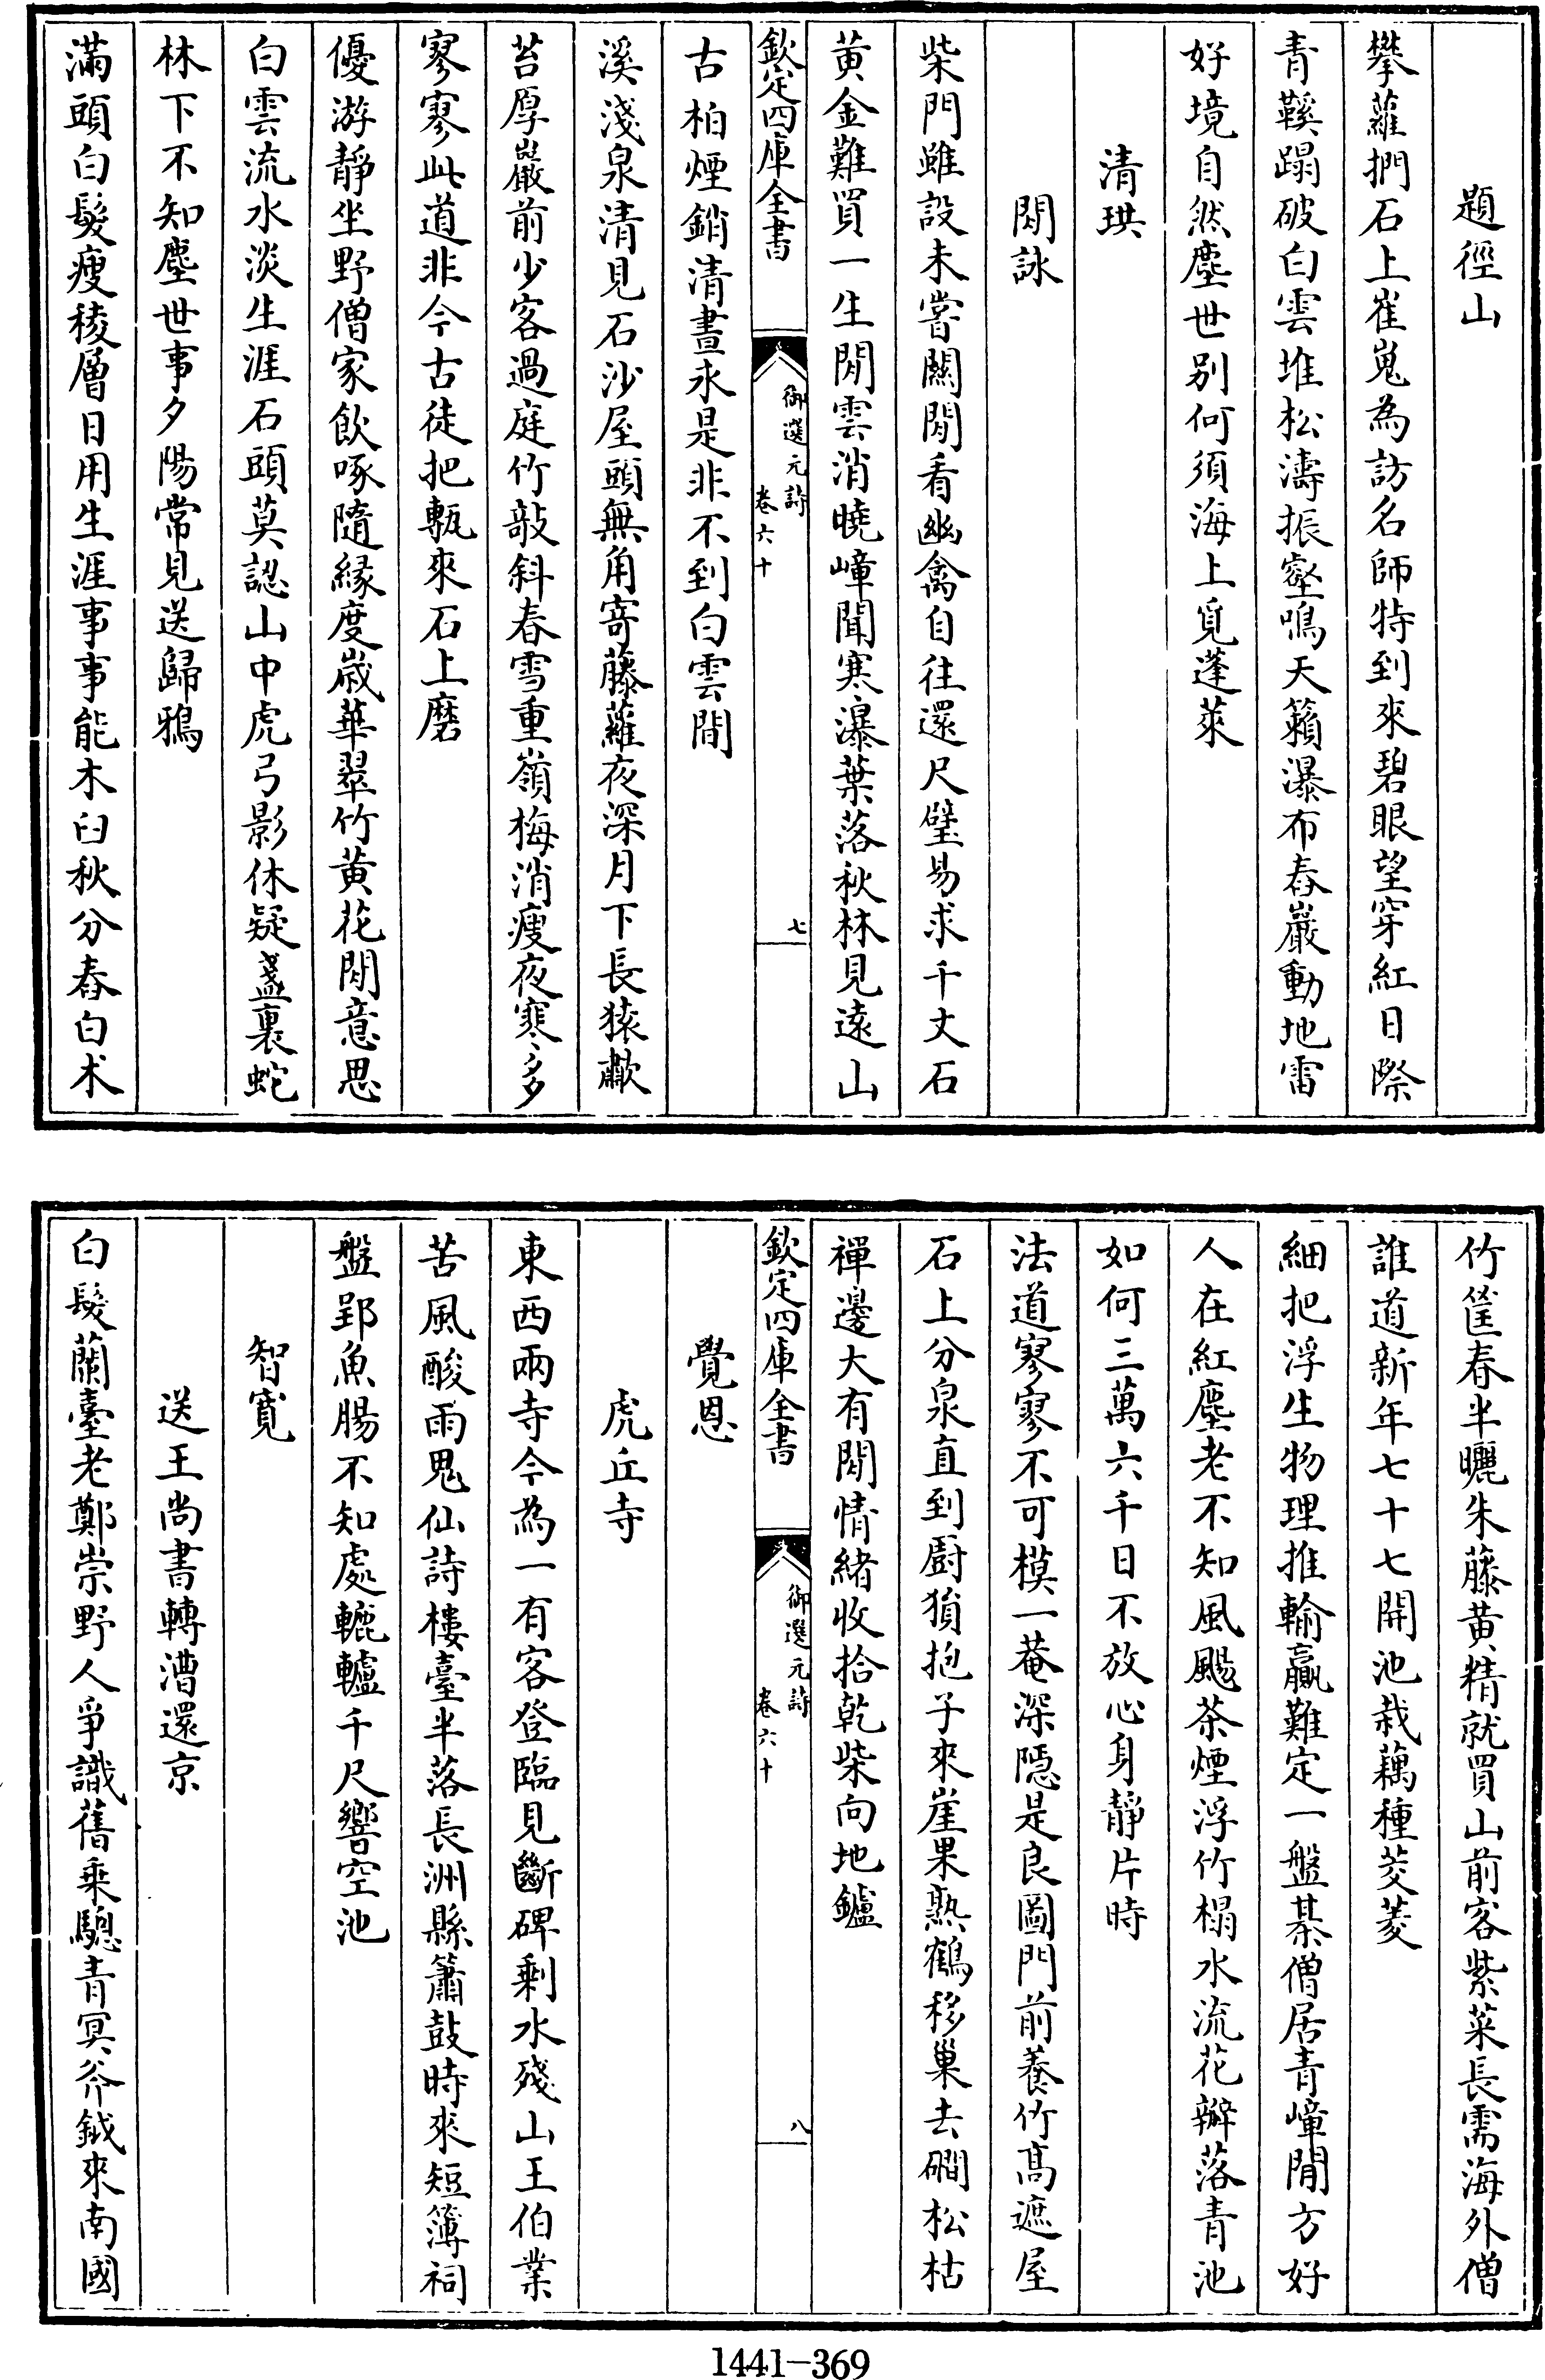 題徑山
攀蘿捫石上崔嵬為訪名師特到來碧眼望穿紅日際
青鞵蹋破白雲堆松濤振壑鳴天籟瀑布舂巖動地雷
好境自然塵世别何須海上覓蓬萊
清珙
閒詠
柴門雖設未嘗關閒看幽禽自往還尺璧易求千丈石
黄金難買一生閒雲消曉嶂聞寒瀑葉落秋林見遠山
欽定四庫全書
御選元詩
卷六十
七
古柏煙銷清晝永是非不到白雲間
溪淺泉清見石沙屋頭無角寄藤蘿夜深月下長猿歗
苔厚巖前少客過庭竹敲斜春雪重嶺梅消瘦夜寒多
寥寥此道非今古徒把甎來石上磨
優游靜坐野僧家飲啄隨緣度嵗華翠竹黄花閒意思
白雲流水淡生涯石頭莫認山中虎弓影休疑盞裏蛇
林下不知塵世事夕陽常見送歸鴉
滿頭白髮瘦稜層日用生涯事事能木臼秋分舂白术
竹筐春半曬朱藤黄精就買山前客紫菜長需海外僧
誰道新年七十七開池栽藕種茭菱
細把浮生物理推輸贏難定一盤棊僧居青嶂閒方好
人在紅塵老不知風颺茶煙浮竹榻水流花瓣落青池
如何三萬六千日不放心身靜片時
法道寥寥不可模一菴深隱是良圖門前養竹髙遮屋
石上分泉直到厨猿抱子來崖果熟鶴移巢去磵松枯
禪邊大有閒情緒收拾乾柴向地鑪
欽定四庫全書
御選元詩
卷六十
八
覺恩
虎丘寺
東西兩寺今為一有客登臨見斷碑剩水殘山王伯業
苦風酸雨鬼仙詩樓臺半落長洲縣簫鼓時來短簿祠
盤郢魚腸不知處轆轤千尺響空池
智寛
送王尚書轉漕還京
白髮蘭臺老鄭崇野人爭識舊乗驄青冥斧鉞來南國
1441—369